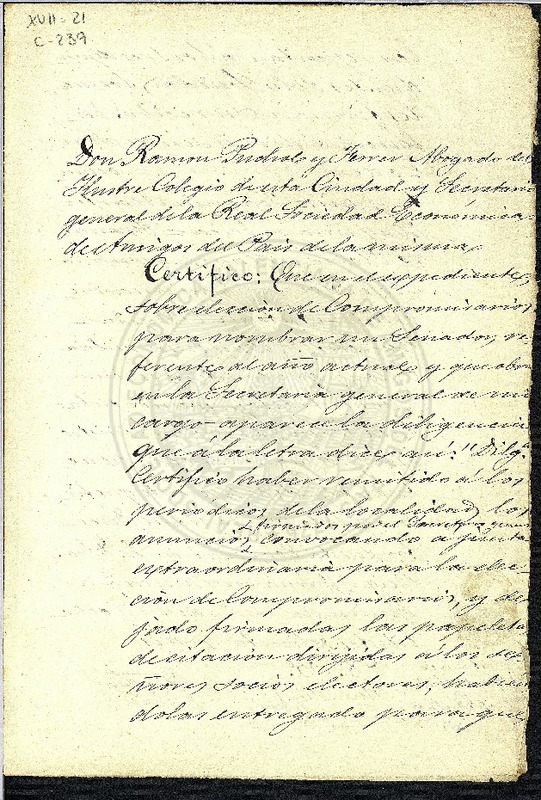 XVII-21
C-239
Don Ramon Pudrolo y Ferrer Abogado del
Ilustre Colegio de esta Ciudad y Secretario
general de la Real Sociedad Económica
de Amigos del Pais de la misma,
Certifico: Que en el espediente,
sobre eleccion de Compromisarios
para nombrar un Senador, re
ferente al año actual y que obra
en la Secretaria general de mi
cargo aparece la diligencia
que á la letra dice asi: "Dilig.ª
Certifico haber remitido á los
periódicos de la localidad, los
firmados por el Secretario general
anuncios convocando a junta
extraordinaria para la elec-
cion de Compromisarios, y de
jado firmadas las papeletas
de citacion dirijidas á los se
ñores socios electores, habien
dolas entregado para que